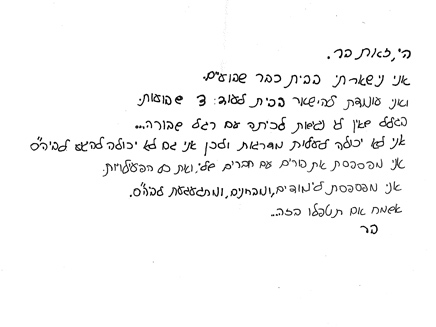 היי, זאות בר.
אני נישארתי בבית כבר שבועיים.
ואני עומדת להישאר בבית לעוד: 3 שבועות.
בגלל שאין לי נגישות לכיתה עם רגל שבורה...
אני לא יכולה לעלות מדרגות ולכן אני גם לא יכולה להגיע לביה"ס
אני מפספסת את פורים עם חברים שלי, ואת כל הפעילויות.
אני מפספסת לימודים, ומבחנים, ומתגעגעת לביה"ס.
אשמח אם תטפלו בזה...
בר